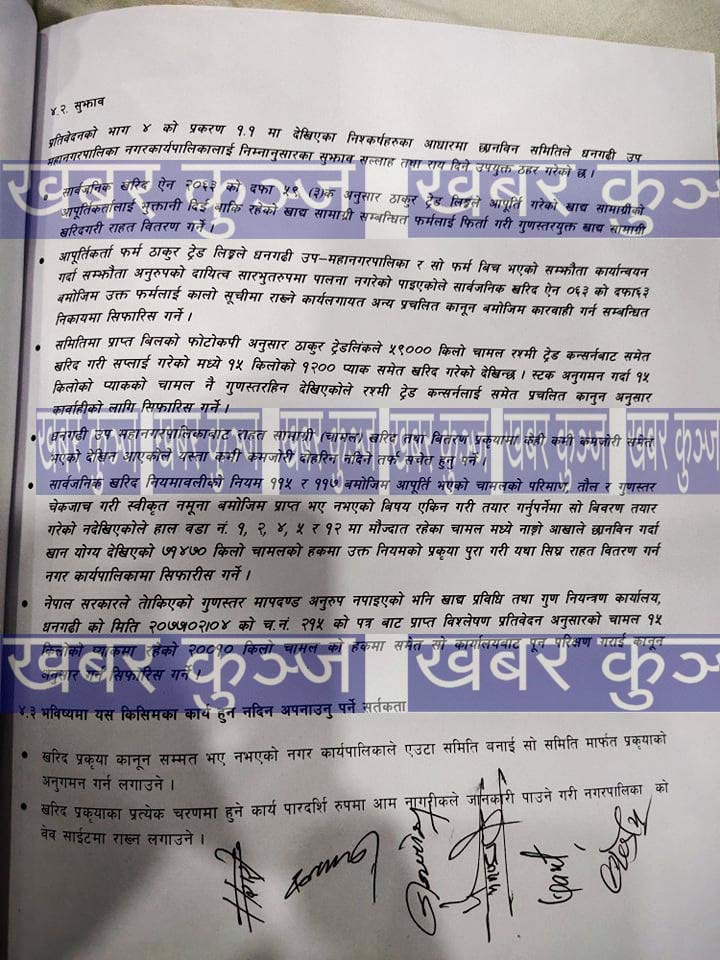 ४.२. सुझाव
प्रतिवेदनको भाग ४ को प्रकरण १.१ मा देखिएका निश्कर्षहरुका आधारमा छानविन समितिले धनगढी उप
महानगरपालिका नगरकार्यपालिकालाई निम्नानुसारका सुझाव सल्लाह तथा राय दिने उपयुक्त ठहर गरेको छ ।
• सार्वजनिक खरिद ऐन २०६३ को दफा ५९ (३)क अनुसार ठाकुर ट्रेड लिङ्कले आपूर्ति गरेको खाद्य सामाग्रीको
आपूर्तिकर्तालाई भुक्तानी दिई बाकि रहेको खाद्य सामाग्री सम्बन्धित फर्मलाई फिर्ता गरी गुणस्तरयुक्त खाद्य सामाग्री
खरिदगरी राहत वितरण गर्ने ।
• आपूर्तिकर्ता फर्म ठाकुर ट्रेड लिङ्कले धनगढी उप-महानगरपालिका र सो फर्म बिच भएको सम्झौता कार्यान्वयन
गर्दा सम्झौता अनुरुपको दायित्व सारभुतरुपमा पालना नगरेको पाइएकोले सार्वजनिक खरिद ऐन ०६३ को दफा६३
बमोजिम उक्त फर्मलाई कालो सूचीमा राख्ने कार्यलगायत अन्य प्रचलित कानून बमोजिम कारवाही गर्न सम्बन्धित
निकायमा सिफारिस गर्ने ।
• समितिमा प्राप्त बिलको फोटोकपी अनुसार ठाकुर ट्रेडलिंकले ५९००० किलो चामल रश्मी ट्रेड कन्सर्नबाट समेत
खरिद गरी सप्लाई गरेको मध्ये १५ किलोको १२०० प्याक समेत खरिद गरेको देखिन्छ । स्टक अनुगमन गर्दा १५
किलोको प्याकको चामल नै गुणस्तरहिन देखिएकोले रश्मी ट्रेड कन्सर्नलाई समेत प्रचलित कानुन अनुसार
कार्वाहीको लागि सिफारिस गर्ने ।
• धनगढी उप महानगरपालिकाबाट राहत सामाग्री (चामल) खरिद तथा बितरण प्रकृयामा केही कमी कमजोरी समेत
भएको देखिन आएकोले यस्ता कमी कमजोरी दोहरिन नदिने तर्फ सचेत हुनु पर्ने ।
• सार्वजनिक खरिद नियमावलीको नियम ११५ र ११७ बमोजिम आपूर्ति भएको चामलको परिमाण, तौल र गुणस्तर
चेकजाच गरी स्वीकृत नमूना बमोजिम प्राप्त भए नभएको बिषय एकिन गरी तयार गर्नुपर्नेमा सो बिवरण तयार
गरेको नदेखिएकोले हाल वडा नं. १, २, ४, ५ र १२ मा मौज्दात रहेका चामल मध्ये नाङ्गो आखाले छानविन गर्दा
खान योग्य देखिएको ७१४७० किलो चामलको हकमा उक्त नियमको प्रकृया पुरा गरी यथा सिघ्र राहत वितरण गर्न
नगर कार्यपालिकामा सिफारीस गर्ने ।
• नेपाल सरकारले तोकिएको गुणस्तर मापदण्ड अनुरुप नपाइएको भनि खाद्य प्रविधि तथा गुण नियन्त्रण कार्यालय,
धनगढी को मिति २०७७।०२।०४ को च.नं. २१५ को पत्र बाट प्राप्त विश्लेषण प्रतिवेदन अनुसारको चामल १५
किलोको प्याकमा रहेको २००१० किलो चामल को हकमा समेत सो कार्यालयबाट पून परिक्षण गराई कानून
अनुसार गर्न सिफारिस गर्ने ।
४.३ भविष्यमा यस किसिमका कार्य हुन नदिन अपनाउनु पर्ने सर्तकता
• खरिद प्रकृया कानून सम्मत भए नभएको नगर कार्यपालिकाले एउटा समिति बनाई सो समिति मार्फत प्रकृयाको
अनुगमन गर्न लगाउने ।
• खरिद प्रकृयाका प्रत्येक चरणमा हुने कार्य पारदर्शि रुपमा आम नागरीकले जानकारी पाउने गरी नगरपालिका को
वेव साईटमा राख्न लगाउने ।
खबर कुञ्ज खबर कुञ्ज
खबर कुञ्ज खबर कुञ्ज खबर कुञ्ज खबर कुञ्ज
खबर कुञ्ज खबर कुञ्ज